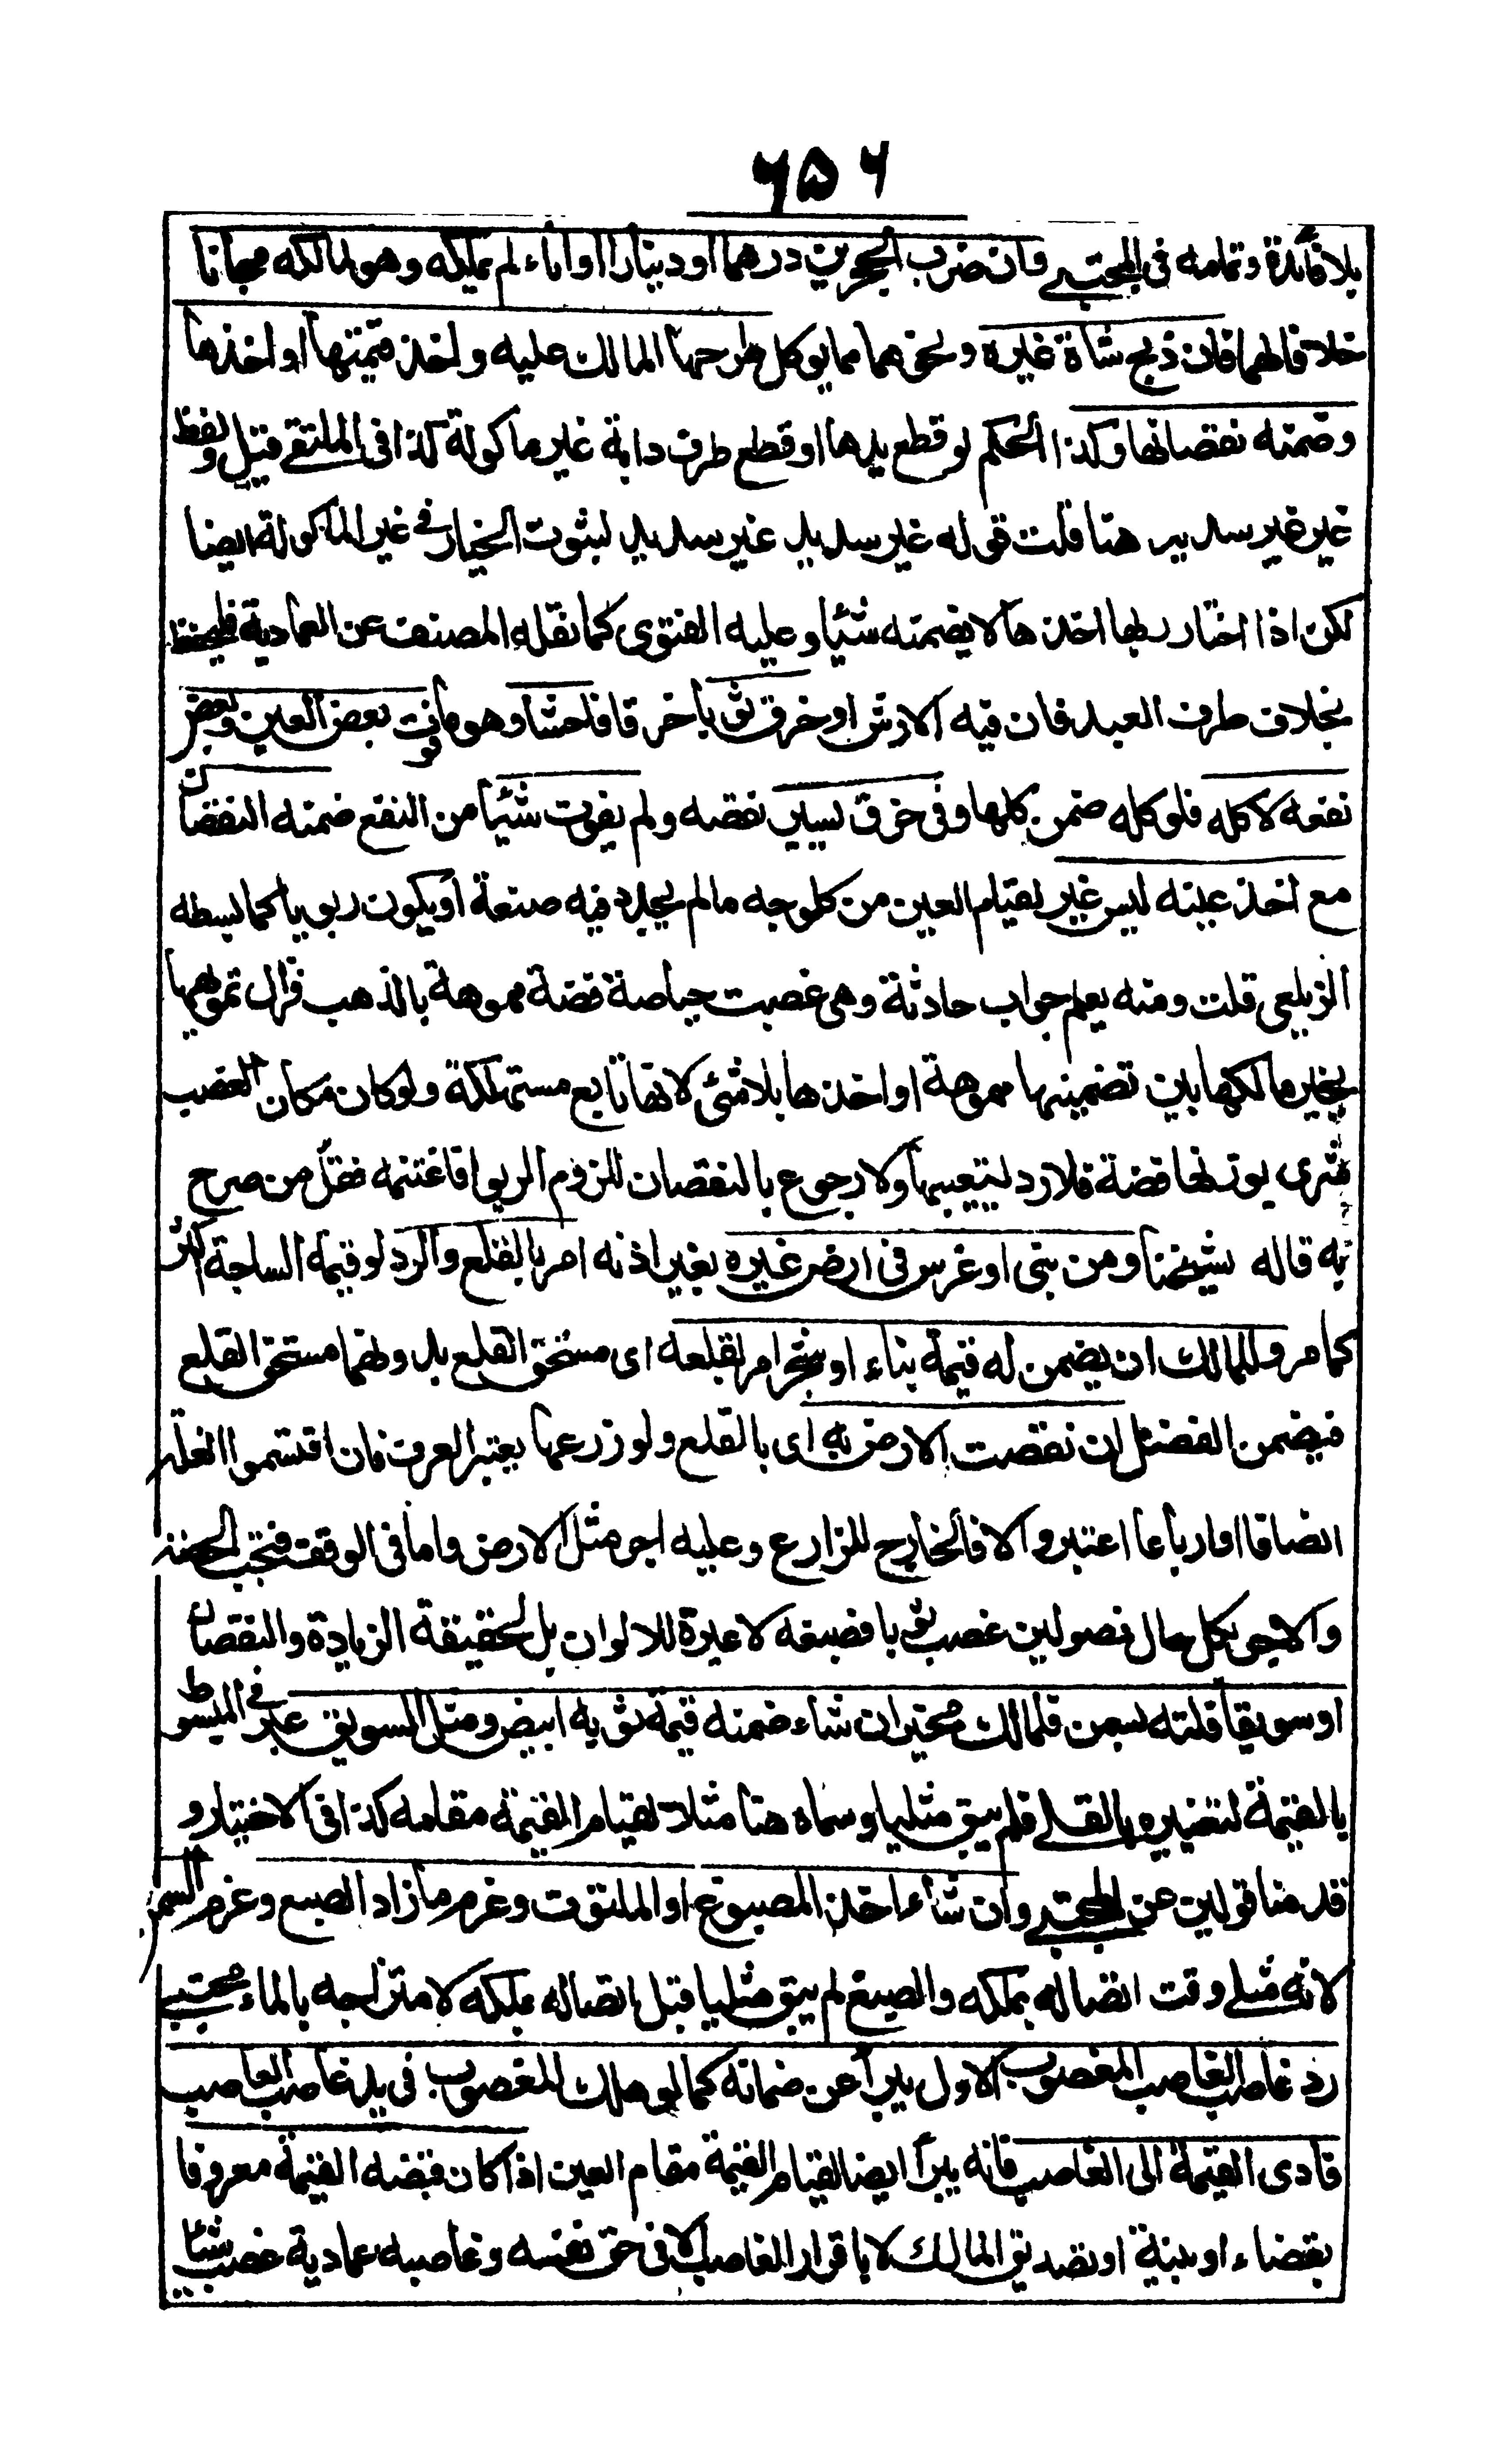 ٦٥٦
بلا فائدة وتمامه فى المجتبى فان ضرب الحجرين درهما او دينارا او اناء لم يملكه وهو لمالكه مجانا
خلافا لهما فان ذبح شاة غيره ونحوهما مما يوكل طرحها المالك عليه واخذ قيمتها او اخذها
وضمنه نقصانها وكذا الحكم لو قطع يدها او قطع طرف دابة غير ماكولة كذا فى الملتقى قيل ولفظ
غير غير سديد هنا قلت قوله غير سديد غير سديد لثبوت الخيار فى غير الماكولة ايضا
لكن اذا اختار ربها اخذها لا يضمنه شيئا وعليه الفتوى كما نقله المصنف عن العمادية فليحفظ
بخلاف طرف العبد فان فيه الارش او خرق ثوبا خرقا فاحشا وهو ما فوت بعض العين وبعض
نفعه لا كله فلو كله ضمن كلها وفى خرق يسير نقصه ولم يفوت شيئا من النفع ضمنه النقصان
مع اخذ عينه ليس غير لقيام العين من كل وجه ما لم يجدد فيه صنعة او يكون ربويا كما بسطه
الزيلعى قلت ومنه يعلم جواب حادثة وهى غصبت حياصة فضة مموهة بالذهب فزال تمويهها
يخير مالكها بين تضمينها مموهة او اخذها بلا شئ لانها تابع مستهلكة ولو كان مكان الغصب
شرى بوزنها فضة فلا رد لتعييبها ولا رجوع بالنقصان للزوم الربوا فاغتنمه فقل من صرح
به قاله شيخنا ومن بنى او غرس فى ارض غيره بغير اذنه امر بالقلع والرد لو قيمة الساحة اكثر
كما مر وللمالك ان يضمن له قيمة بناء او شجر امر بقلعه اى مستحق القلع بدونهما مستحق القلع
فيضمن الفضل ان نقصت الارض به اى بالقلع ولو زرعها يعتبر العرف فان اقتسموا الغلة
انصافا او ارباعا اعتبر والا فالخارج للزارع وعليه اجر مثل الارض واما فى الوقف فتجب الحصة
والاجر بكل حال فصولين غصب ثوبا فصبغه لا عبرة للالوان بل لحقيقة الزيادة والنقصان
او سويقا فلته بسمن فلمالك مخير ان شاء ضمنه قيمة ثوبه ابيض ومثل السويق عبر فى المبسوط
بالقيمة لتغيره بالقلى فلم يبق مثليا وسماه هنا مثلا لقيام القيمة مقامه كذا فى الاختيار و
قدمنا قولين عن المجتبى وان شاء اخذ المصبوغ او الملتوت وغرم ما زاد الصبغ وغرم السمن
لانه مثلى وقت اتصاله بملكه والصبغ لم يبق مثليا قبل اتصاله بملكه لامتزاجه بالماء مجتبى
رد غاصب الغاصب المغصوب الاول يبرأ عن ضمانه كما لو هلك المغصوب فى يد غاصب الغاصب
فادى القيمة الى الغاصب فانه يبرأ ايضا لقيام القيمة مقام العين اذا كان قبضه القيمة معروفا
بقضاء او بينة او تصديق المالك لا باقرار الغاصب الا فى حق نفسه وغاصبه عمادية غصب شيئا